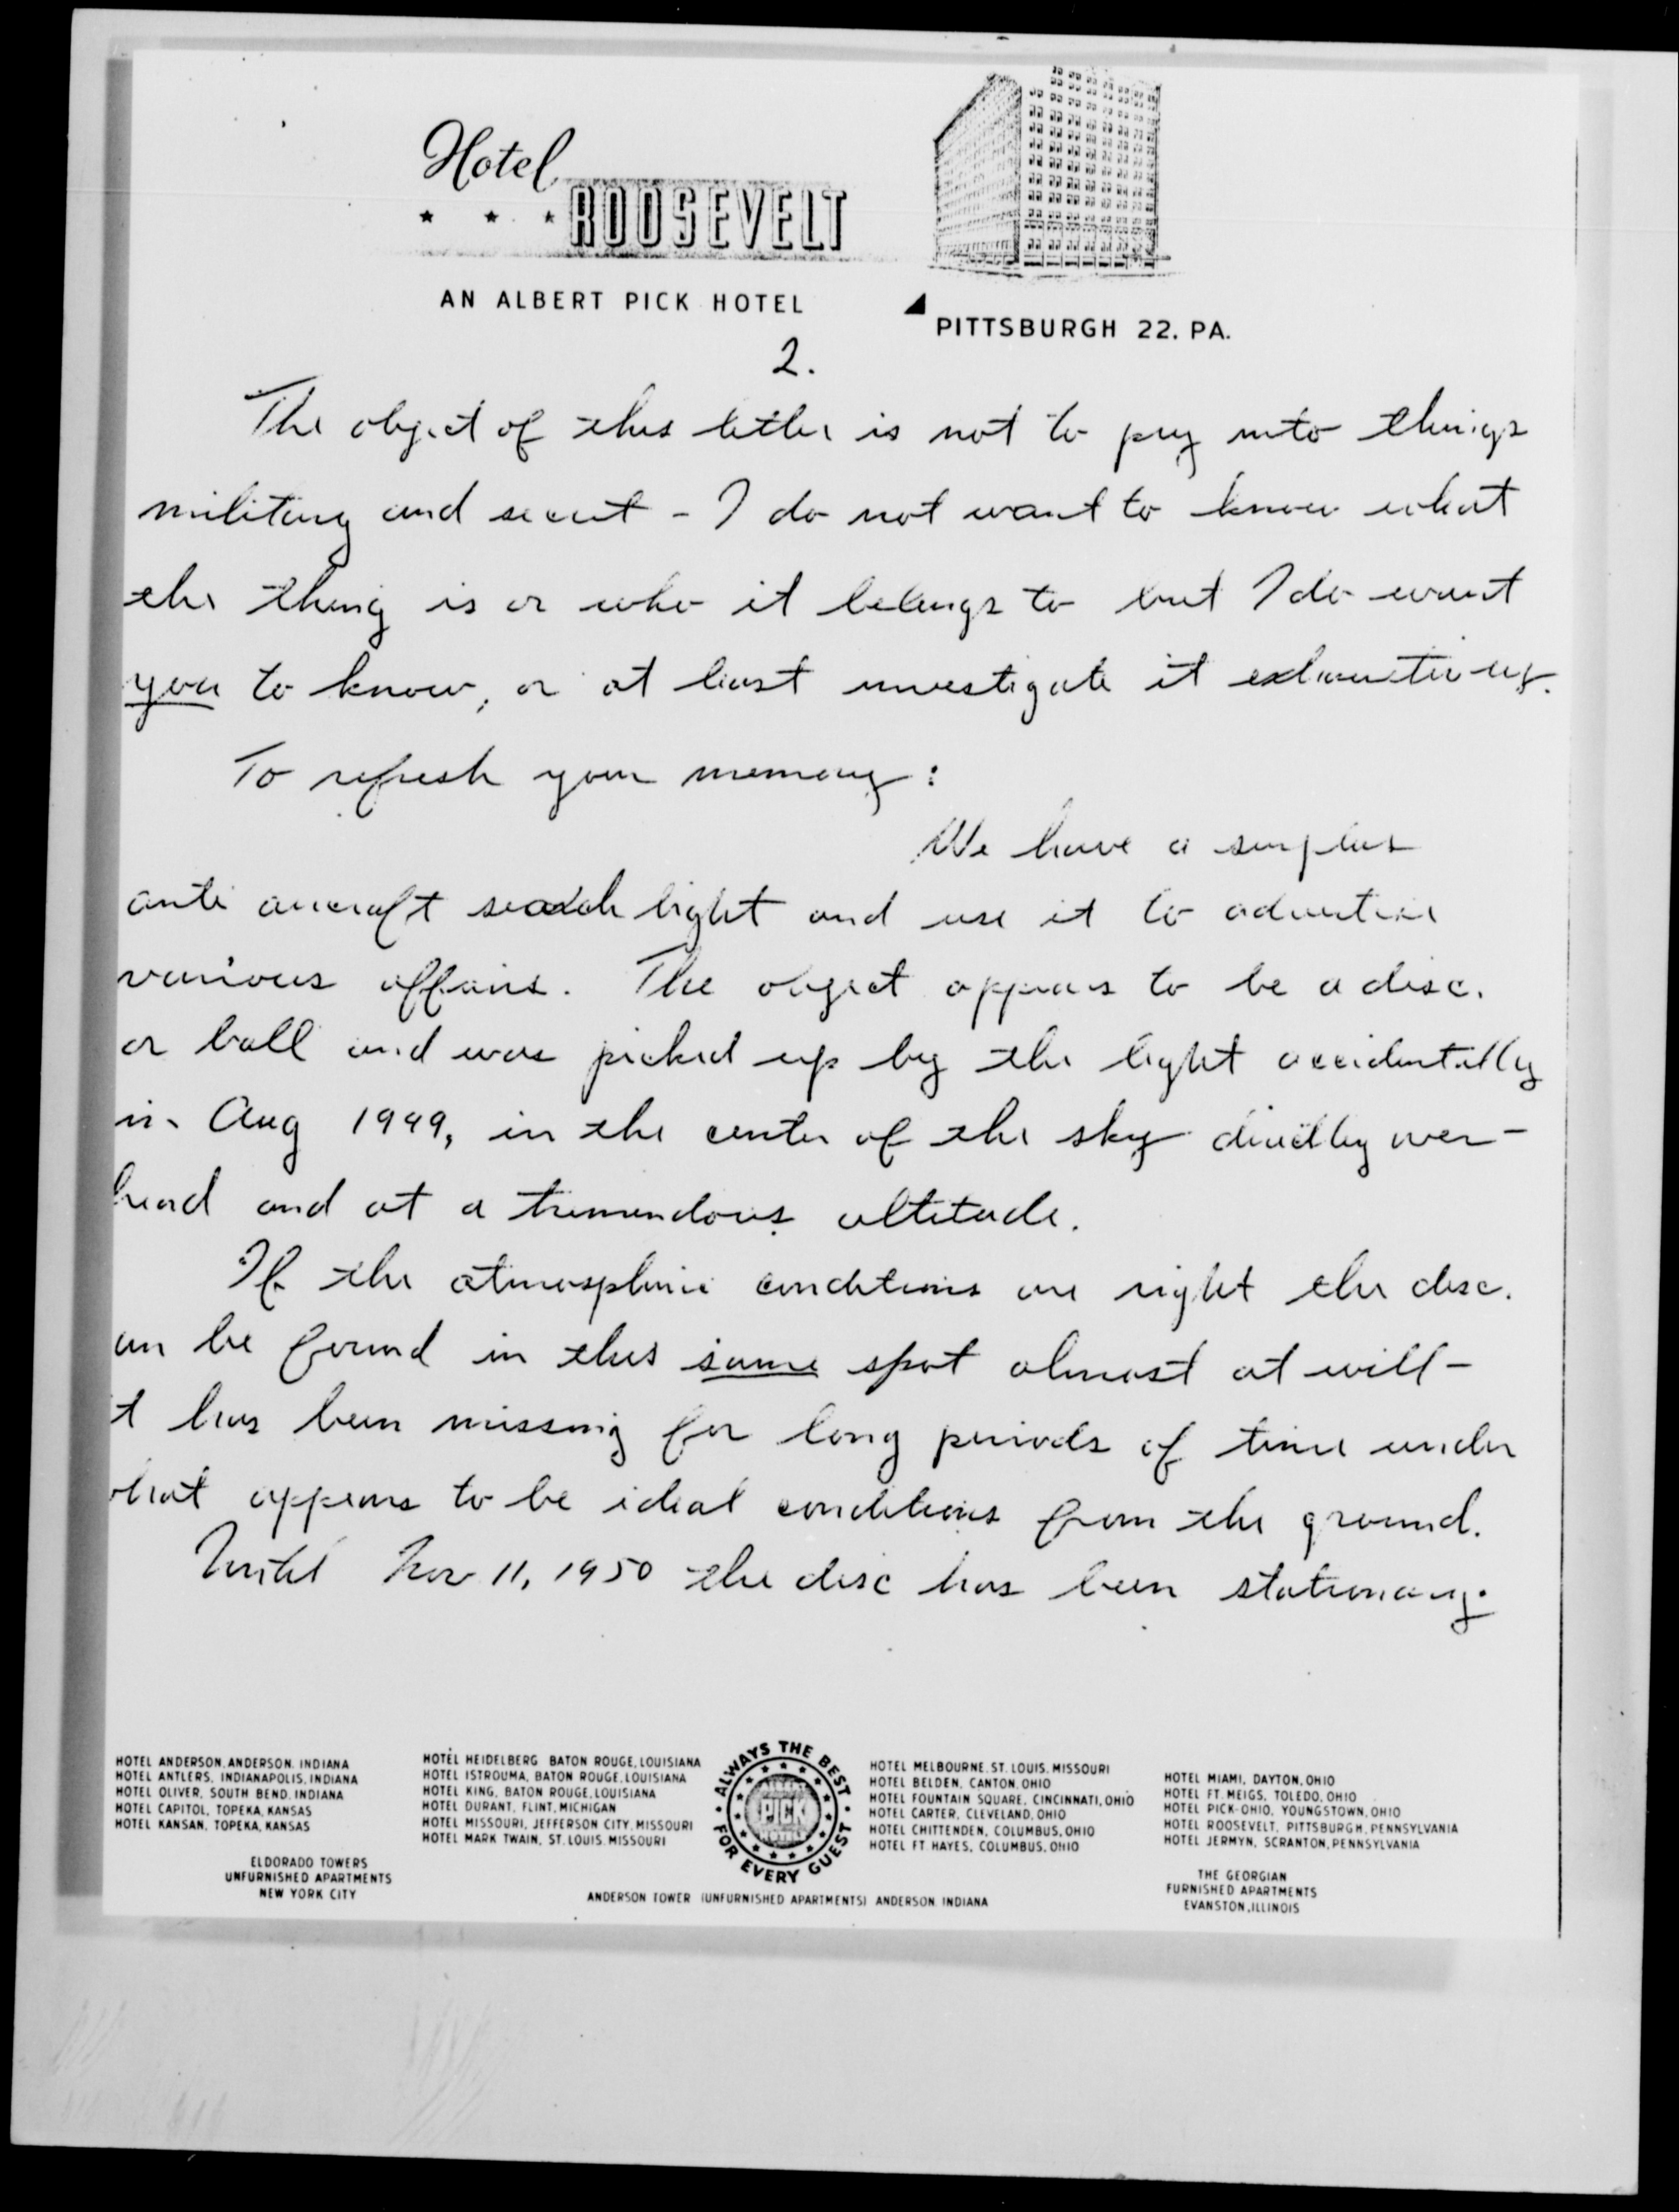 Hotel
ROOSEVELT
AN ALBERT PICK HOTEL
PITTSBURGH 22. PA.
2.
The object of this letter is not to pry into things
military and secret - I do not want to know what
the thing is or who it belongs to but I do want
you to know, or at least investigate it exhaustively.
To refresh your memory:
We have a surplus
anti aircraft search light and use it to advertise
various affairs. The object appears to be a disc.
or ball and was picked up by the light accidentally
in Aug 1949, in the center of the sky directly over-
head and at a tremendous altitude.
If the atmospheric conditions are right the disc.
an be found in this same spot almost at will -
t has been missing for long periods of time under
hat appears to be ideal conditions from the ground.
Until Nov 11, 1950 the disc has been stationary.
HOTEL ANDERSON, ANDERSON, INDIANA
HOTEL ANTLERS, INDIANAPOLIS, INDIANA
HOTEL OLIVER, SOUTH BEND, INDIANA
HOTEL CAPITOL, TOPEKA, KANSAS
HOTEL KANSAN, TOPEKA, KANSAS
ELDORADO TOWERS
UNFURNISHED APARTMENTS
NEW YORK CITY
HOTEL HEIDELBERG BATON ROUGE, LOUISIANA
HOTEL ISTROUMA, BATON ROUGE, LOUISIANA
HOTEL KING, BATON ROUGE, LOUISIANA
HOTEL DURANT, FLINT, MICHIGAN
HOTEL MISSOURI, JEFFERSON CITY, MISSOURI
HOTEL MARK TWAIN, ST. LOUIS, MISSOURI
ALWAYS THE BEST
PICK
FOR EVERY GUEST
ANDERSON TOWER (UNFURNISHED APARTMENTS) ANDERSON INDIANA
HOTEL MELBOURNE, ST. LOUIS, MISSOURI
HOTEL BELDEN, CANTON, OHIO
HOTEL FOUNTAIN SQUARE, CINCINNATI, OHIO
HOTEL CARTER, CLEVELAND, OHIO
HOTEL CHITTENDEN, COLUMBUS, OHIO
HOTEL FT HAYES, COLUMBUS, OHIO
HOTEL MIAMI, DAYTON, OHIO
HOTEL FT. MEIGS, TOLEDO, OHIO
HOTEL PICK-OHIO, YOUNGSTOWN, OHIO
HOTEL ROOSEVELT, PITTSBURGH, PENNSYLVANIA
HOTEL JERMYN, SCRANTON, PENNSYLVANIA
THE GEORGIAN
FURNISHED APARTMENTS
EVANSTON, ILLINOIS